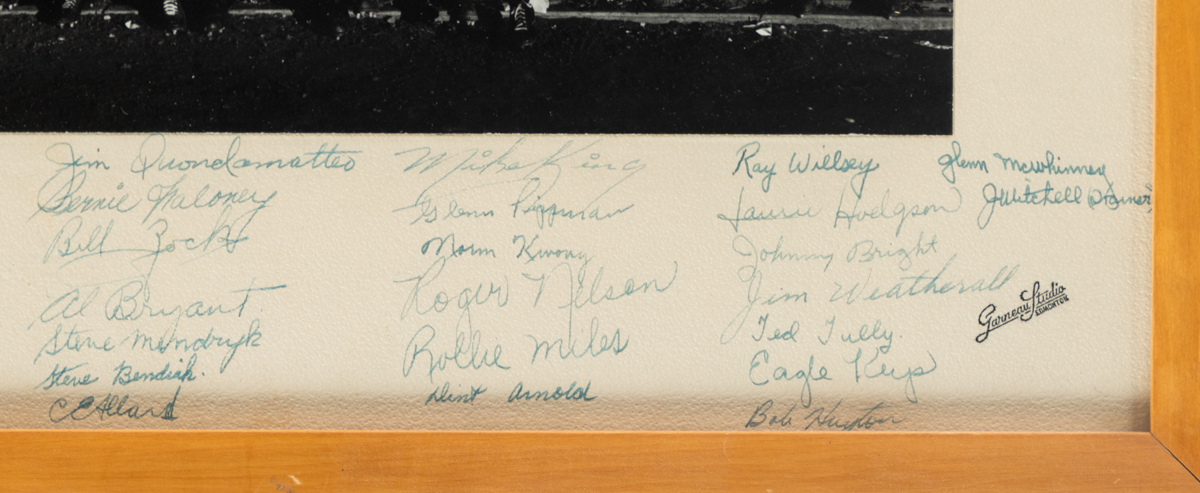 Jim Quondamatteo
Bernie Faloney
Bill Zock
Al Bryant
Steve Mendryk
Steve Bendiak.
CE Allard
Mike King
Glenn
Norm Kwong
Roger Nelson
Rollie Miles
Arnold
Ray Willsey
Laurie Hodgson
Johnny Bright
Jim Weatherall
Ted Tully.
Eagle Keys
Bob
Glenn McWhinney
J Mitchell
Garneau Studio
EDMONTON